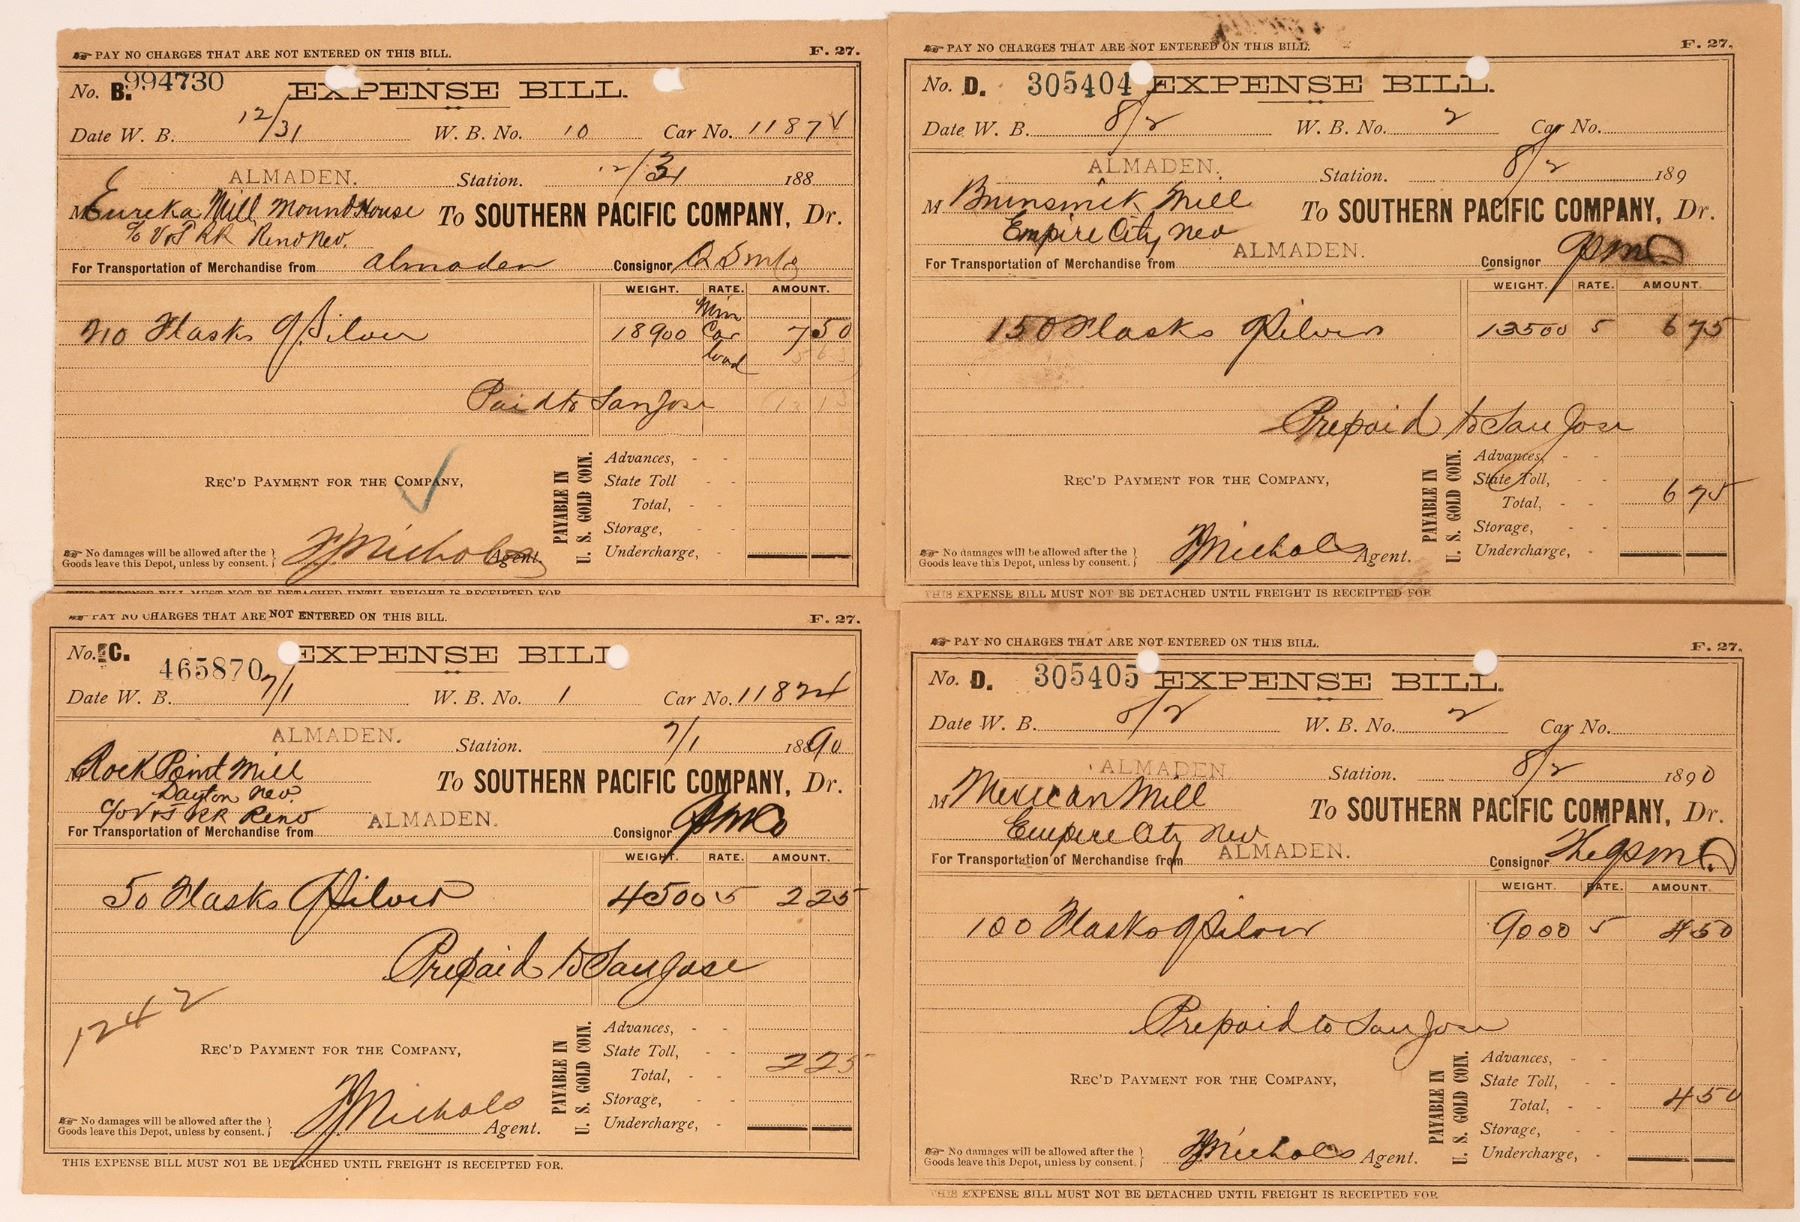 PAY NO CHARGES THAT ARE NOT ENTERED ON THIS BILL. F. 27.
No. B. 994730 EXPENSE BILL.
Date W. B. 12/31 W. B. No. 10 Car No. 1187
ALMADEN. Station. 12/31 188
M Eureka Mill Mound House To SOUTHERN PACIFIC COMPANY, Dr.
c/o V&T RR Reno Nev.
For Transportation of Merchandise from Almaden Consignor
WEIGHT. RATE. AMOUNT.
210 Flasks Q Silver 18900 Min Car load 7 50
Paid to San Jose
Advances, - -
REC'D PAYMENT FOR THE COMPANY, State Toll - -
Total, - -
PAYABLE IN U. S. GOLD COIN.
Storage, - -
No damages will be allowed after the Goods leave this Depot, unless by consent. Nichols Agent. Undercharge, -
THIS EXPENSE BILL MUST NOT BE DETACHED UNTIL FREIGHT IS RECEIPTED FOR
PAY NO CHARGES THAT ARE NOT ENTERED ON THIS BILL. F. 27.
No. D. 305404 EXPENSE BILL.
Date W. B. 8/2 W. B. No. 2 Car No.
ALMADEN. Station. 8/2 189
M Brunswick Mill To SOUTHERN PACIFIC COMPANY, Dr.
Empire City Nev
For Transportation of Merchandise from ALMADEN. Consignor
WEIGHT. RATE. AMOUNT.
150 Flasks Q Silver 13500 5 6 75
Prepaid to San Jose
Advances, - -
REC'D PAYMENT FOR THE COMPANY, State Toll, - -
Total, - - 6 75
PAYABLE IN U. S. GOLD COIN.
Storage, - -
No damages will be allowed after the Goods leave this Depot, unless by consent. Nichols Agent. Undercharge, -
THIS EXPENSE BILL MUST NOT BE DETACHED UNTIL FREIGHT IS RECEIPTED FOR
PAY NO CHARGES THAT ARE NOT ENTERED ON THIS BILL. F. 27.
No. C. 465870 EXPENSE BILL
Date W. B. 7/1 W. B. No. 1 Car No. 11824
ALMADEN. Station. 7/1 1890
M Rock Point Mill To SOUTHERN PACIFIC COMPANY, Dr.
Dayton Nev.
c/o V&T RR Reno
For Transportation of Merchandise from ALMADEN. Consignor
WEIGHT. RATE. AMOUNT.
50 Flasks Q Silver 4500 5 2 25
Prepaid to San Jose
1242
Advances, - -
REC'D PAYMENT FOR THE COMPANY, State Toll, - -
Total, - - 2 25
PAYABLE IN U. S. GOLD COIN.
Storage, - -
No damages will be allowed after the Goods leave this Depot, unless by consent. Nichols Agent. Undercharge, -
THIS EXPENSE BILL MUST NOT BE DETACHED UNTIL FREIGHT IS RECEIPTED FOR.
PAY NO CHARGES THAT ARE NOT ENTERED ON THIS BILL. F. 27.
No. D. 305405 EXPENSE BILL.
Date W. B. 8/2 W. B. No. 2 Car No.
ALMADEN Station. 8/2 1890
M Mexican Mill To SOUTHERN PACIFIC COMPANY, Dr.
Empire City Nev
For Transportation of Merchandise from ALMADEN. Consignor
WEIGHT. RATE. AMOUNT.
100 Flasks Q Silver 9000 5 4 50
Prepaid to San Jose
Advances, - -
REC'D PAYMENT FOR THE COMPANY, State Toll, - -
Total, - - 4 50
PAYABLE IN U. S. GOLD COIN.
Storage, - -
No damages will be allowed after the Goods leave this Depot, unless by consent. Nichols Agent. Undercharge, -
THIS EXPENSE BILL MUST NOT BE DETACHED UNTIL FREIGHT IS RECEIPTED FOR